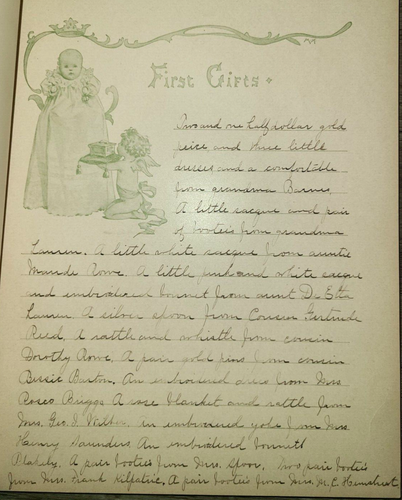 First Gifts.
Two and one half dollar gold
peice and three little
dresses and a comfortable
from grandma Barnes
A little sacque and pair
of bootees from grandma
Lauren. A little white sacque from auntie
Maude Rowe. A little pink and white sacque
and embroidered bonnet from aunt De Etta
Lauren A silver spoon from Cousin Gertrude
Reed, A rattle and whistle from cousin
Dorothy Rowe. A pair gold pins from cousin
Bessie Burton, An embroidered dress from Mrs
Roseo Briggs A rose blanket and rattle from
Mrs. Geo. I. Wilber. An embroidered yoke from Mrs
Henry Saunders. An embroidered bonnett
Blakely. A pair bootees from Mrs. Spoor, two pair bootees
from Mrs. Frank Kilpatric, A pair bootees from Mrs. M. E.